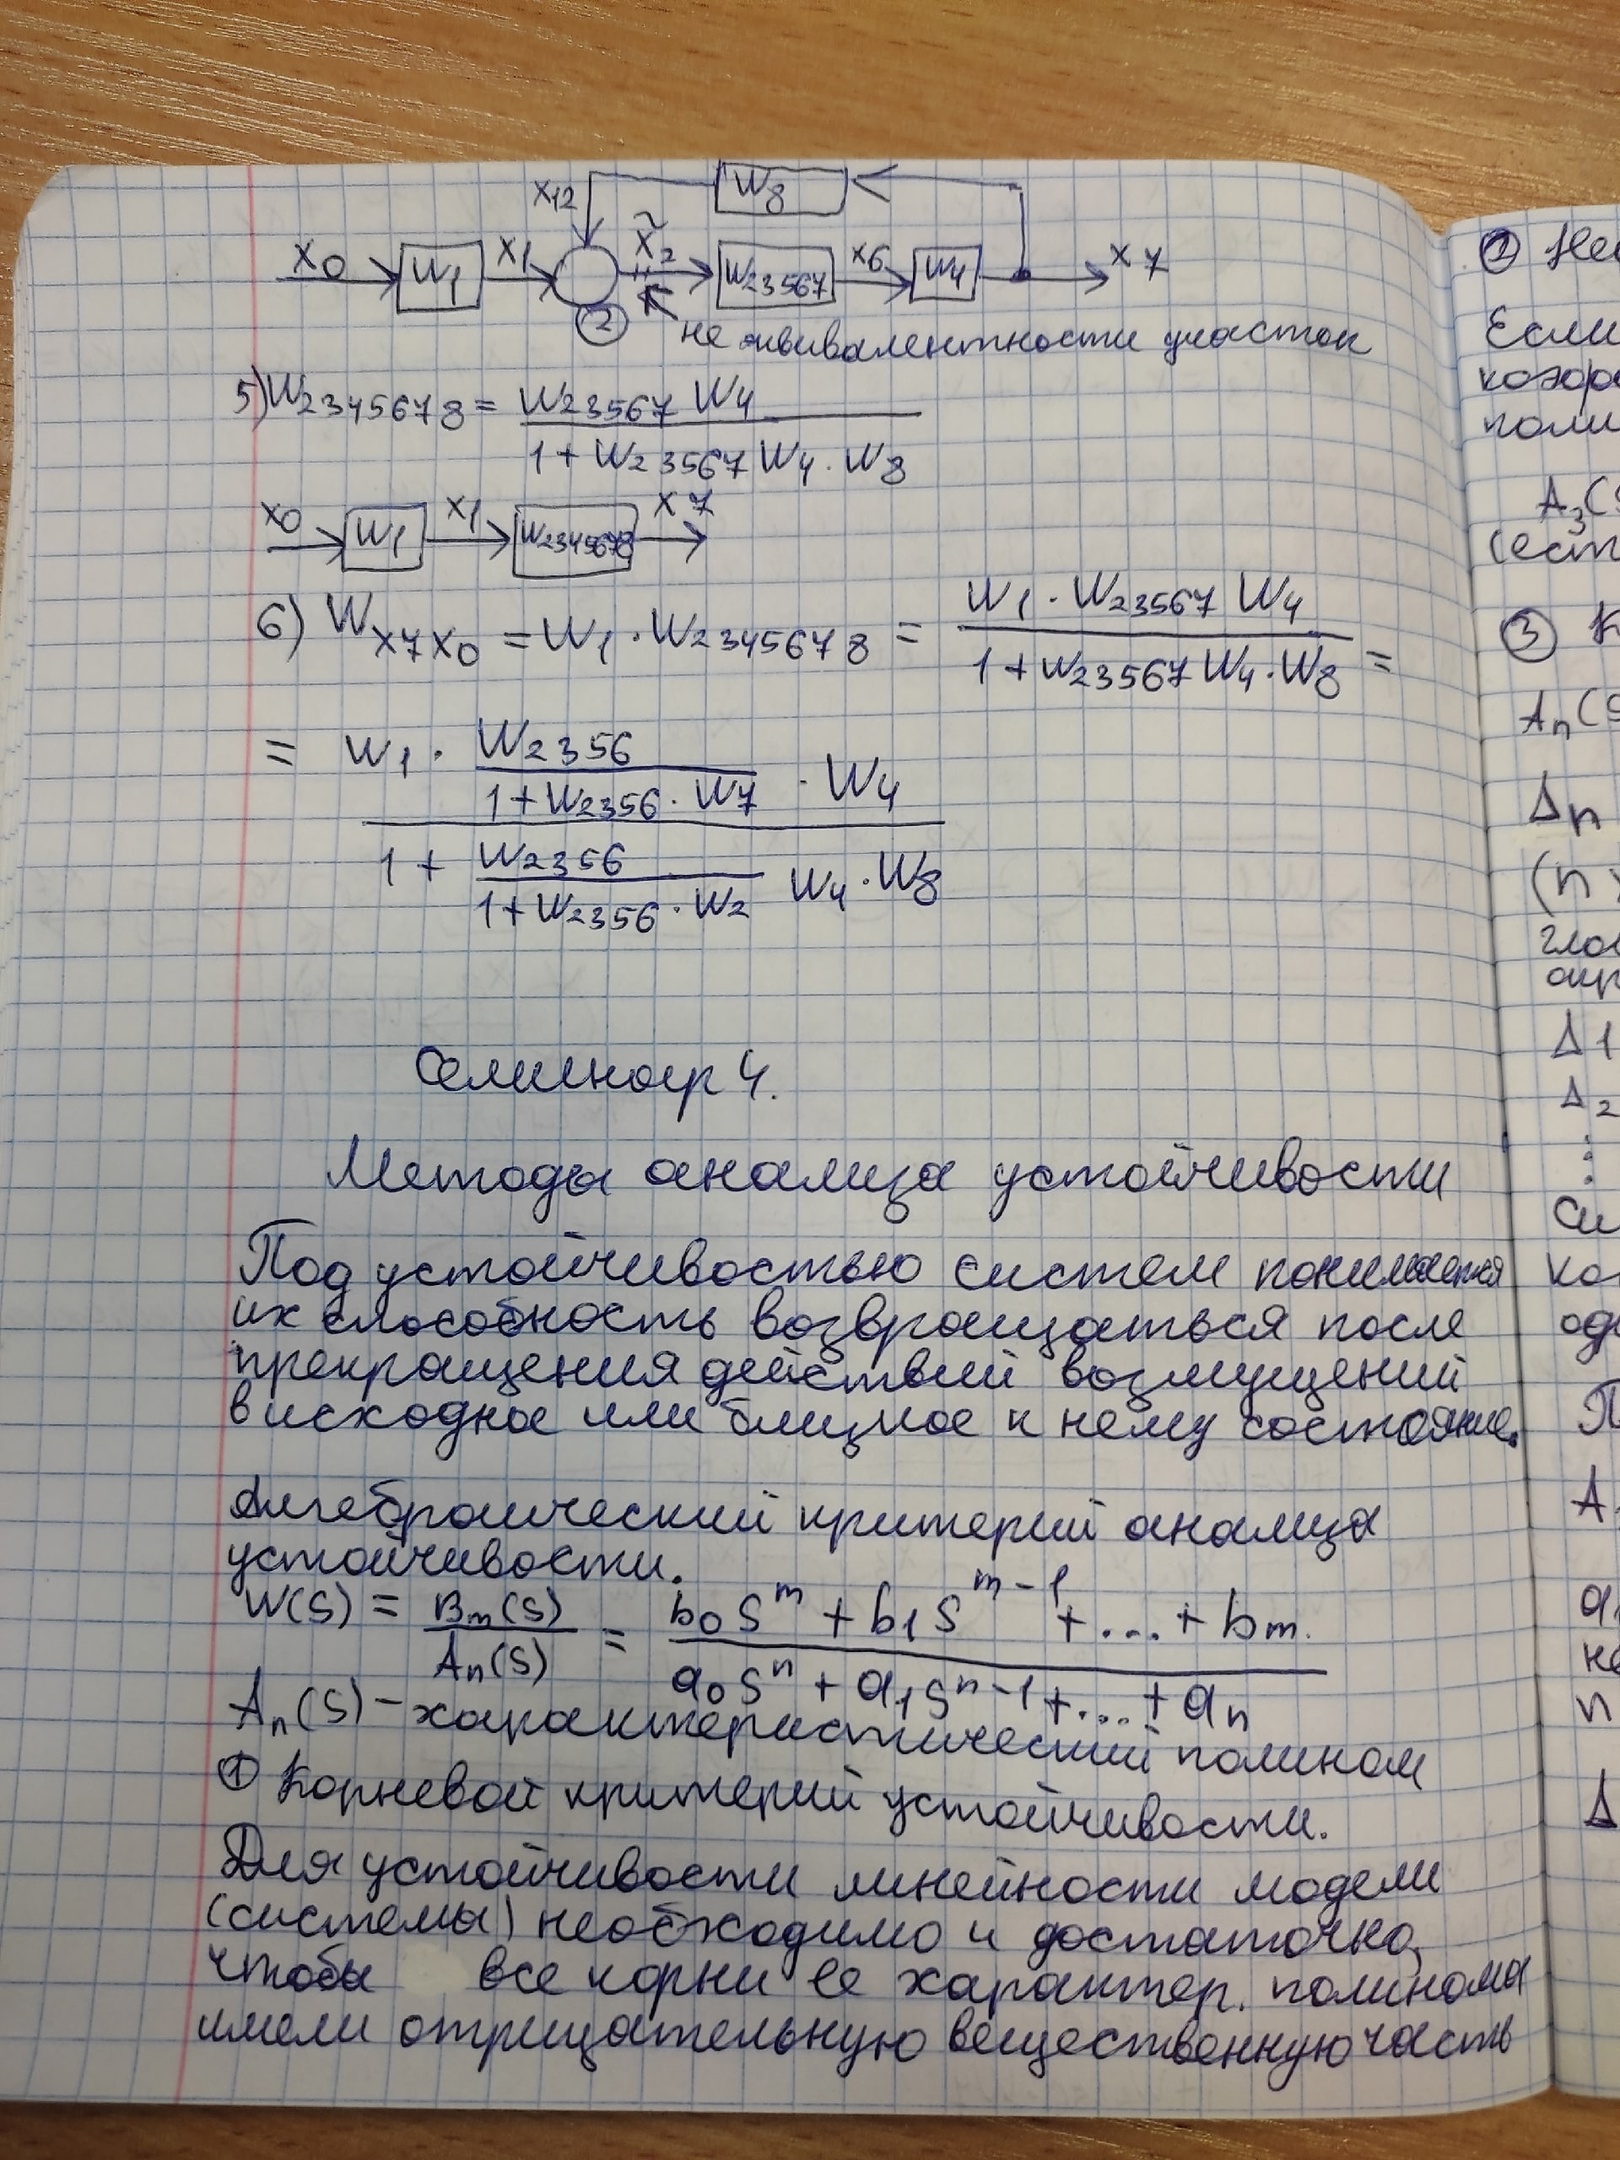 x12 W8
x0 W1 x1 x̃2 W23567 x6 W4 x7
② не эквивалентности участок
5) W2345678 = W23567 W4 / 1 + W23567 W4 · W8
x0 W1 x1 W2345678 x7
6) Wx7x0 = W1 · W2345678 = W1 · W23567 W4 / 1 + W23567 W4 · W8 =
= W1 · W2356 / 1 + W2356 · W7 · W4
1 + W2356 / 1 + W2356 · W2 W4 · W8
Семинар 4.
Методы анализа устойчивости
Под устойчивостью систем понимается
их способность возвращаться после
прекращения действий возмущений
в исходное или близкое к нему состояние.
Алгебраический критерий анализа
устойчивости.
W(s) = Bm(s) / An(s) = b0 s^m + b1 s^m-1 + ... + bm. / a0 s^n + a1 s^n-1 + ... + an
An(s) – характеристический полином
① Корневой критерий устойчивости.
Для устойчивости линейности модели
(системы) необходимо и достаточно,
чтобы все корни ее характер. полинома
имели отрицательную вещественную часть
②
Если
A3(s
③ К
An(s
Δn
(n
Δ1
Δ2
⋮
П
A
n
Δ